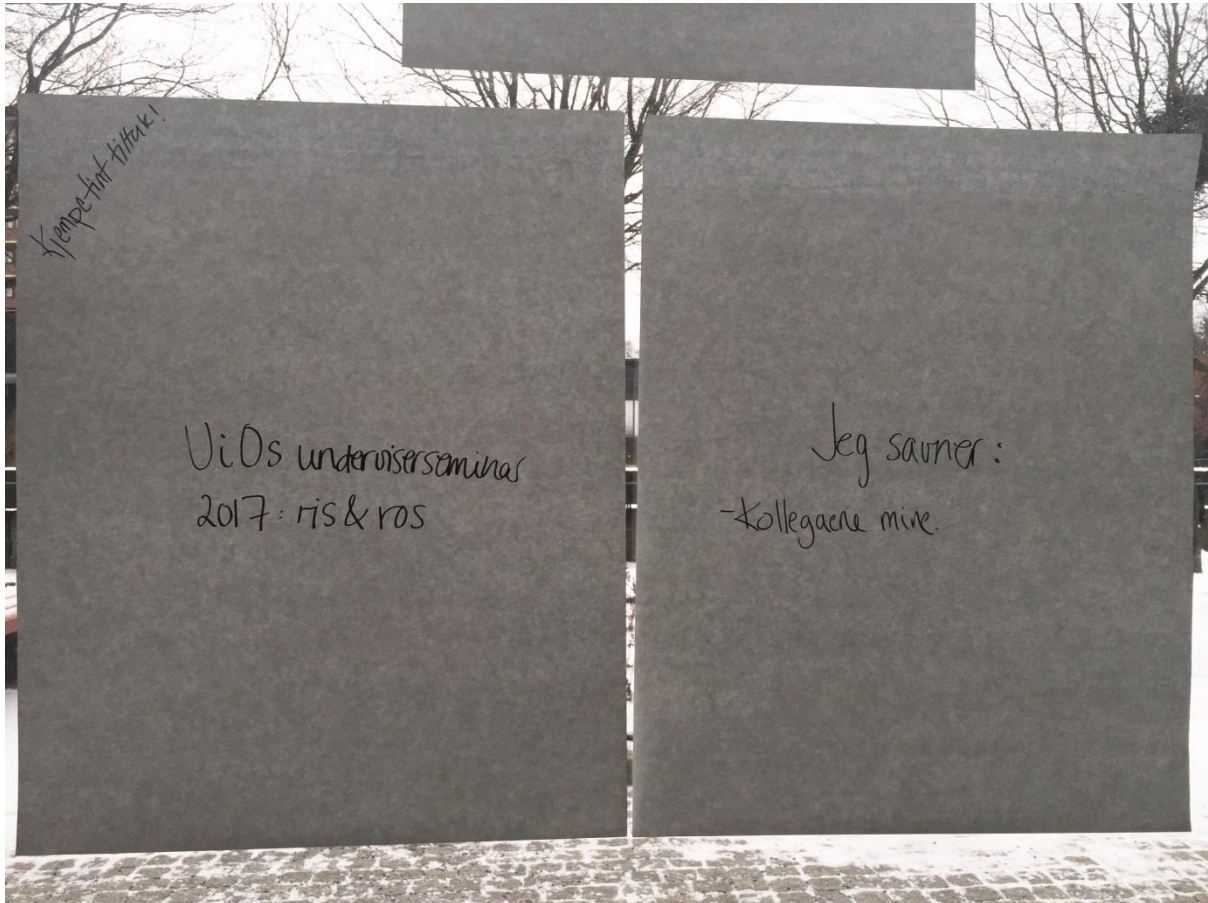 Kjempefint tiltak!
UiOs underviserseminar
2017: ris & ros
Jeg savner:
- Kollegaene mine.